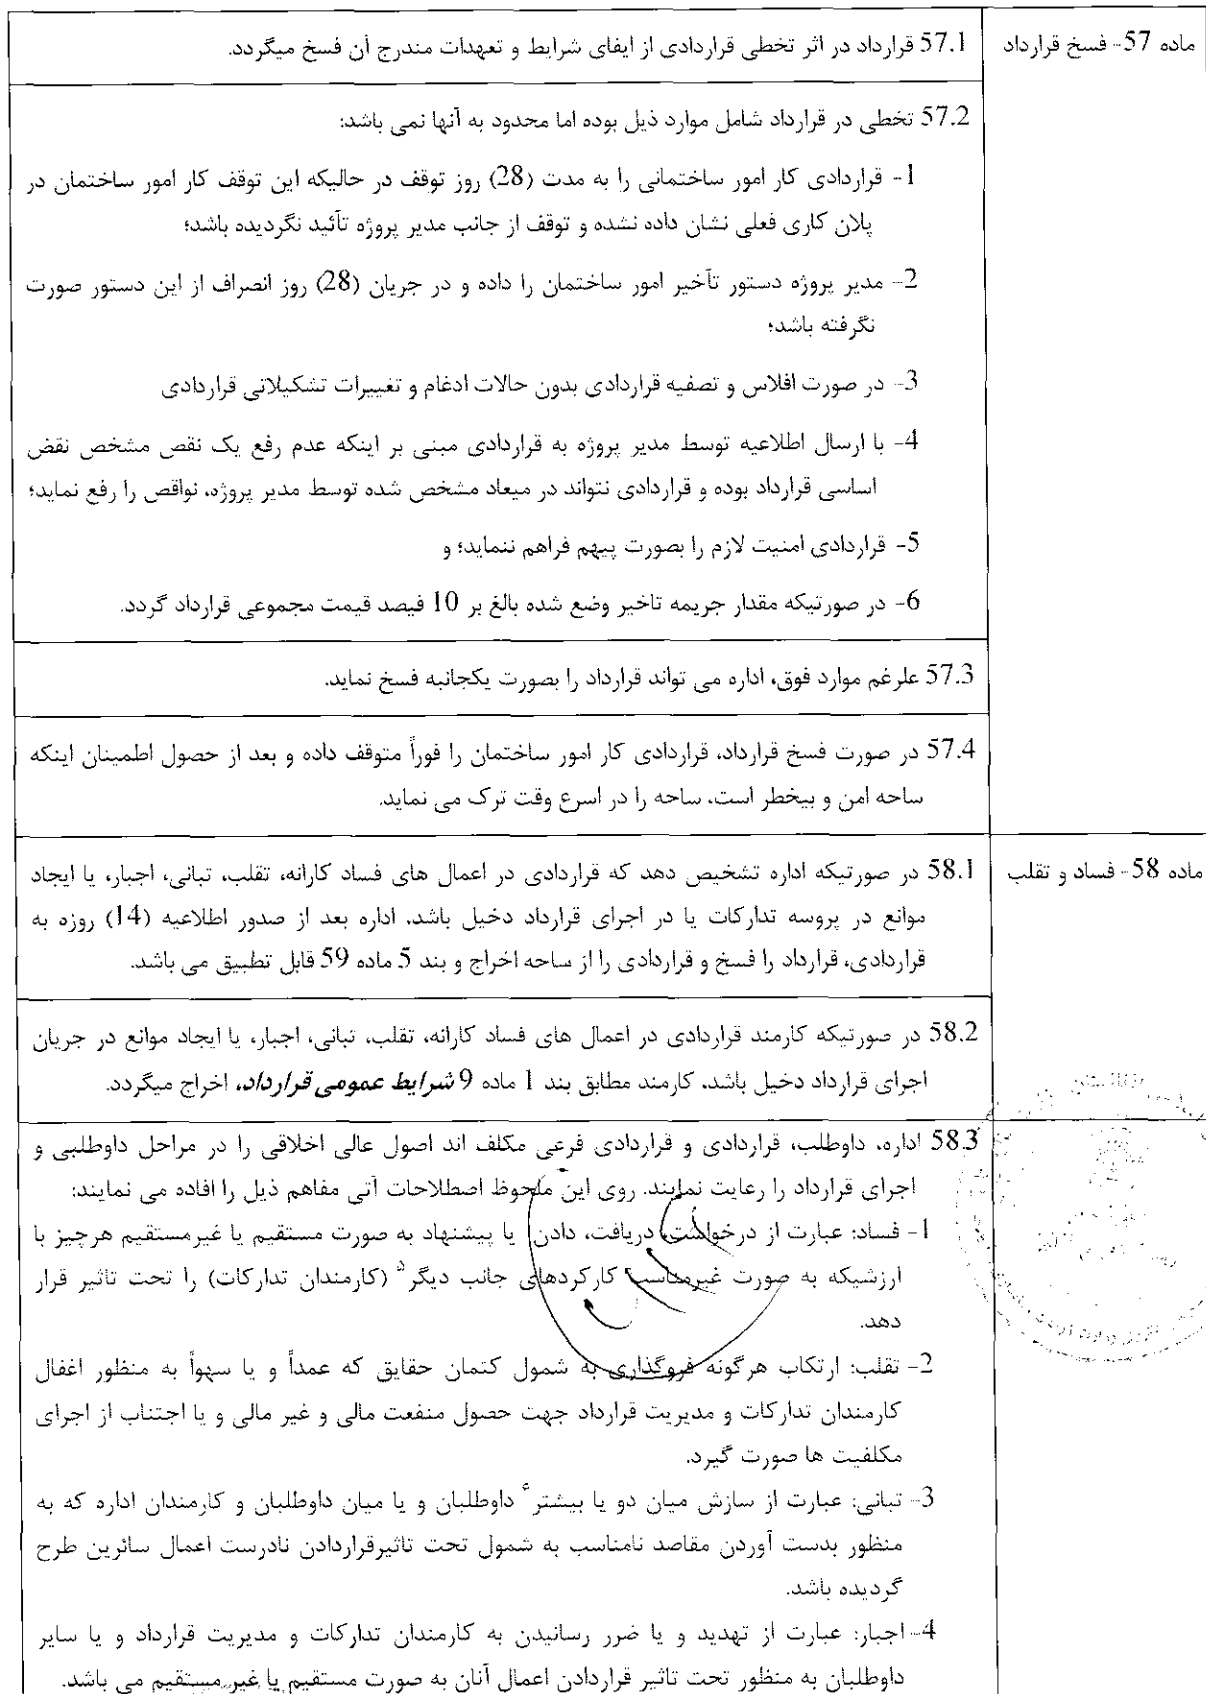 ماده 57- فسخ قرارداد
57.1 قرارداد در اثر تخطی قراردادی از ایفای شرایط و تعهدات مندرج آن فسخ میگردد.
57.2 تخطی در قرارداد شامل موارد ذیل بوده اما محدود به آنها نمی باشد:
1- قراردادی کار امور ساختمانی را به مدت (28) روز توقف در حالیکه این توقف کار امور ساختمان در
پلان کاری فعلی نشان داده نشده و توقف از جانب مدیر پروژه تآئید نگردیده باشد؛
2- مدیر پروژه دستور تآخیر امور ساختمان را داده و در جریان (28) روز انصراف از این دستور صورت
نگرفته باشد؛
3- در صورت افلاس و تصفیه قراردادی بدون حالات ادغام و تغییرات تشکیلاتی قراردادی
4- با ارسال اطلاعیه توسط مدیر پروژه به قراردادی مبنی بر اینکه عدم رفع یک نقص مشخص نقض
اساسی قرارداد بوده و قراردادی نتواند در میعاد مشخص شده توسط مدیر پروژه، نواقص را رفع نماید؛
5- قراردادی امنیت لازم را بصورت پیهم فراهم ننماید؛ و
6- در صورتیکه مقدار جریمه تاخیر وضع شده بالغ بر 10 فیصد قیمت مجموعی قرارداد گردد.
57.3 علرغم موارد فوق، اداره می تواند قرارداد را بصورت یکجانبه فسخ نماید.
57.4 در صورت فسخ قرارداد، قراردادی کار امور ساختمان را فوراً متوقف داده و بعد از حصول اطمینان اینکه
ساحه امن و بیخطر است، ساحه را در اسرع وقت ترک می نماید.
ماده 58- فساد و تقلب
58.1 در صورتیکه اداره تشخیص دهد که قراردادی در اعمال های فساد کارانه، تقلب، تبانی، اجبار، یا ایجاد
موانع در پروسه تدارکات یا در اجرای قرارداد دخیل باشد، اداره بعد از صدور اطلاعیه (14) روزه به
قراردادی، قرارداد را فسخ و قراردادی را از ساحه اخراج و بند 5 ماده 59 قابل تطبیق می باشد.
58.2 در صورتیکه کارمند قراردادی در اعمال های فساد کارانه، تقلب، تبانی، اجبار، یا ایجاد موانع در جریان
اجرای قرارداد دخیل باشد، کارمند مطابق بند 1 ماده 9 شرایط عمومی قرارداد، اخراج میگردد.
58.3 اداره، داوطلب، قراردادی و قراردادی فرعی مکلف اند اصول عالی اخلاقی را در مراحل داوطلبی و
اجرای قرارداد را رعایت نمایند. روی این ملحوظ اصطلاحات آتی مفاهم ذیل را افاده می نمایند:
1- فساد: عبارت از درخواست، دریافت، دادن یا پیشنهاد به صورت مستقیم یا غیرمستقیم هرچیز با
ارزشیکه به صورت غیرمناسب کارکردهای جانب دیگر (کارمندان تدارکات) را تحت تاثیر قرار
دهد.
2- تقلب: ارتکاب هرگونه فروگذاری به شمول کتمان حقایق که عمداً و یا سهواً به منظور اغفال
کارمندان تدارکات و مدیریت قرارداد جهت حصول منفعت مالی و غیر مالی و یا اجتناب از اجرای
مکلفیت ها صورت گیرد.
3- تبانی: عبارت از سازش میان دو یا بیشتر داوطلبان و یا میان داوطلبان و کارمندان اداره که به
منظور بدست آوردن مقاصد نامناسب به شمول تحت تاثیرقراردادن نادرست اعمال سائرین طرح
گردیده باشد.
4- اجبار: عبارت از تهدید و یا ضرر رسانیدن به کارمندان تدارکات و مدیریت قرارداد و یا سایر
داوطلبان به منظور تحت تاثیر قراردادن اعمال آنان به صورت مستقیم یا غیر مستقیم می باشد.